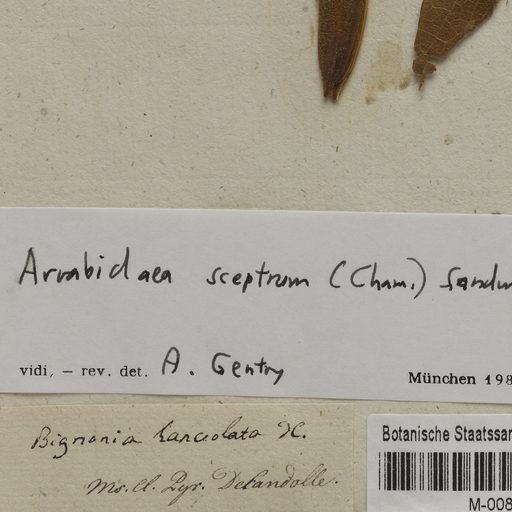 Arrabidaea sceptrum (Cham.) Sandw
vidi, – rev. det. A. Gentry
München 198
Bignonia lanceolata
Ms. Cl. Pyr. Decandolle.
Botanische Staatssar
M-008